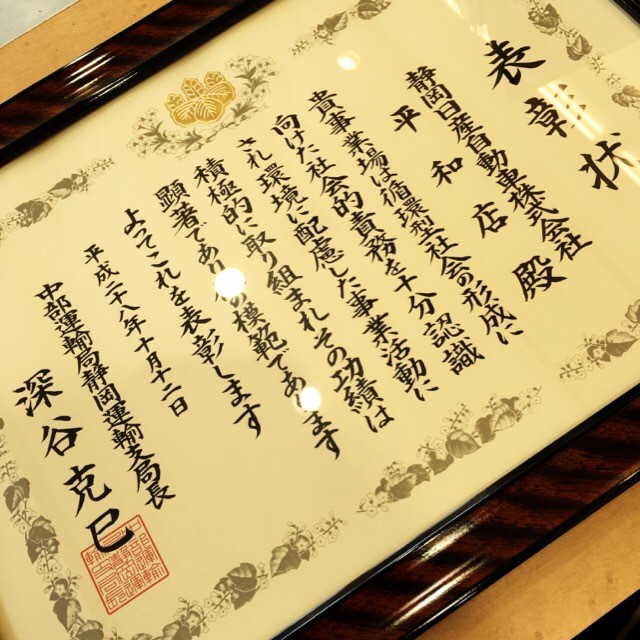 表彰状
静岡日産自動車株式会社
平和店 殿
貴事業場は循環型社会の形成に
向けた社会的責務を十分認識
され環境に配慮した事業活動に
積極的に取り組まれその功績は
顕著であり 模範であります
よってこれを表彰します
平成二十八年十月十二日
中部運輸局静岡運輸支局長
深谷克巳